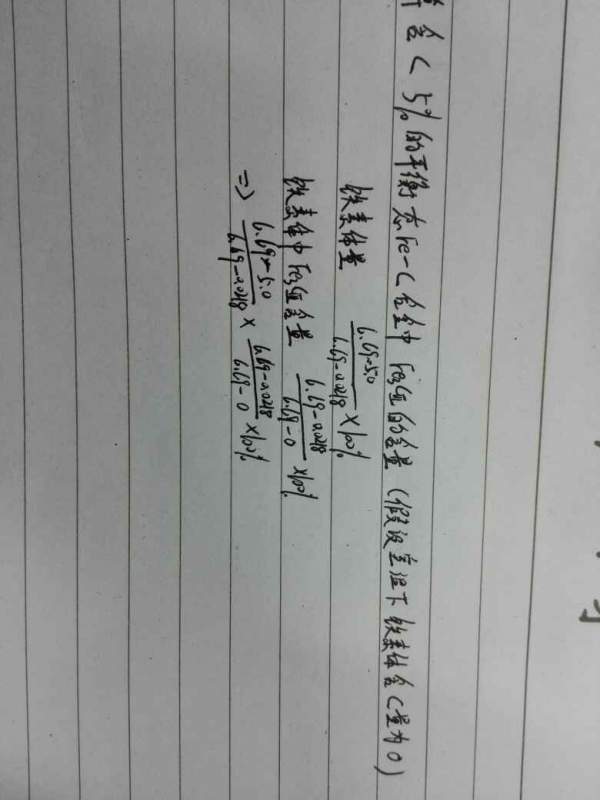 算含C 5%的平衡态Fe-C合金中 Fe₃CⅢ的含量 (假设室温下铁素体含C量为0)
铁素体量 (6.69-5.0)/(6.69-0.0218) ×100%
铁素体中Fe₃CⅢ含量 (6.69-0.0218)/(6.69-0) ×100%
=> (6.69-5.0)/(6.69-0.0218) × (6.69-0.0218)/(6.69-0) ×100%